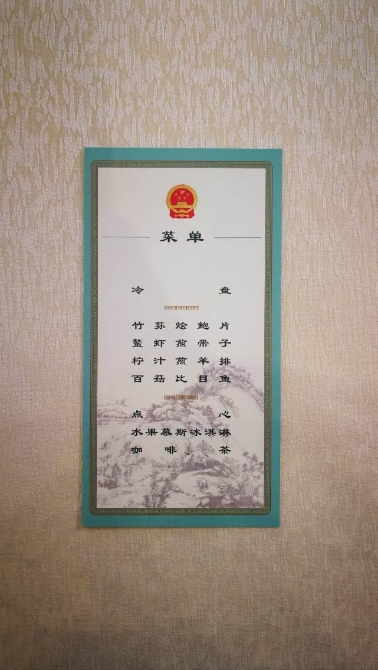 菜单
冷盘
竹荪烩鲍片
螯虾煎带子
柠汁煎羊排
百菇比目鱼
点心
水果慕斯冰淇淋
咖啡、茶